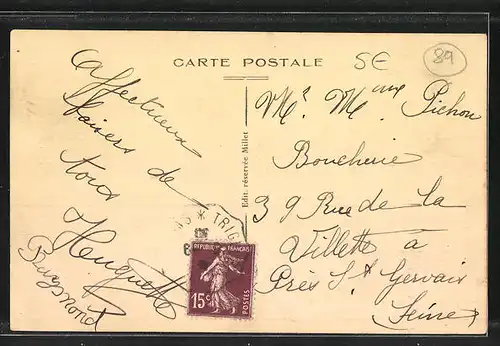 CARTE POSTALE
5€
89
Affectueux
baisers de
tous
Huguette
Mr. Mme Pichon
Boucherie
39 Rue de la
Villette à
Près St Gervais
Seine
Edit. réservée Millet
* TRIG
REPUBLIQUE FRANÇAISE
15c
POSTES